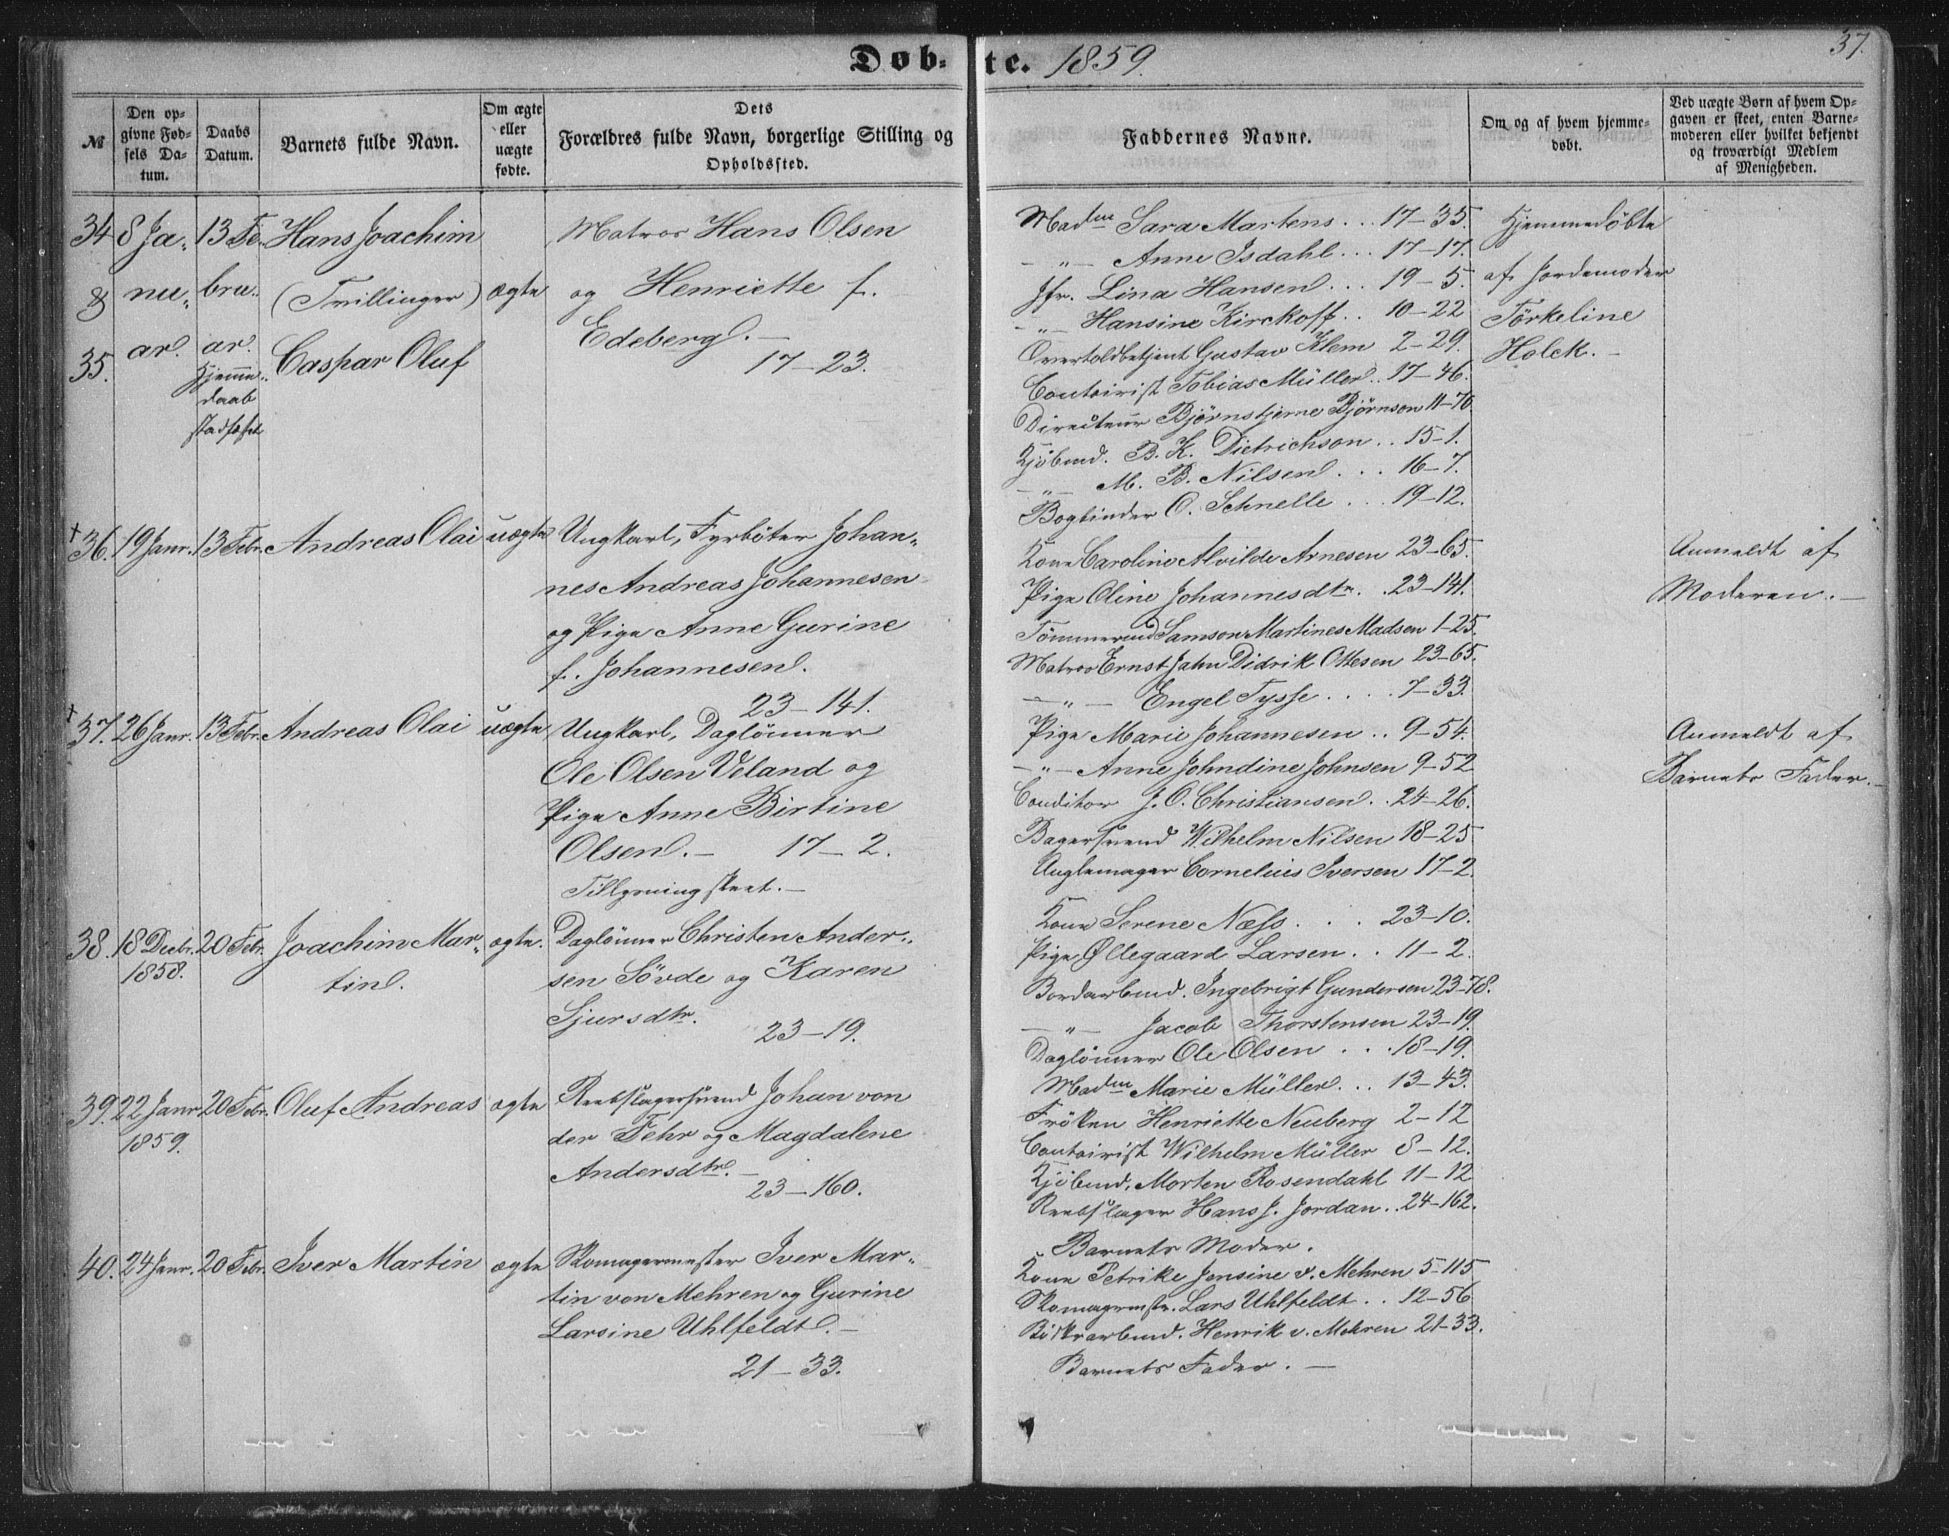 37.
Døbte. 1859.
№
Den op-
givne Fød-
sels Da-
tum.
Daabs
Datum.
Barnets fulde Navn.
Om ægte
eller
uægte
fødte.
Dets
Forældres fulde Navn, borgerlige Stilling og
Opholdssted.
Faddernes Navne.
Om og af hvem hjemme-
døbt.
Ved uægte Børn af hvem Op-
gaven er skeet, enten Barne-
moderen eller hvilket bekjendt
og troværdigt Medlem
af Menigheden.
34
&
35.
8 Ja-
nu-
ar.
13 Fe-
bru-
ar.
Hjemme-
daab
stadfæstet
Hans Joachim
(Trillinger)
Caspar Oluf
ægte
Matros Hans Olsen
og Henriette f.
Edeberg. —
17—23.
Madm Sara Martens . . . 17—35.
— „ — Anne Isdahl . . . 17—17.
Jfr. Lina Hansen . . . 19—5.
— „ — Hansine Kirckoff . . 10—22
Overtoldbetjent Gustav Klem 2—29.
Contoirist Tobias Müller . . 17—46.
Directeur Bjørnstjerne Bjørnson 11—70
Kjöbmd. B. K. Dietrichson . . 15—1.
— „ — M. B. Nilsen . . . 16—7.
Bogbinder O. Schnelle . . . 19—12.
Hjemmedøbte
af Jordemoder
Törkeline
Holck. —
+
36.
19 Janr.
13 Febr.
Andreas Olai
uægte
Ungkarl, Fyrböter Johan-
nes Andreas Johannesen
og Pige Anne Gurine
f. Johannesen.
23—141.
Kone Caroline Alvilde Arnesen 23—65.
Pige Oline Johannesdtr. . . 23—141.
Tömmermd Samson Martines Madsen 1—25.
Matros Ernst Jahn Didrik Ottesen 23—65.
— „ — Engel Tysse . . . . 7—33.
Anmeldt af
Moderen. —
+
37.
26 Janr.
13 Febr.
Andreas Olai
uægte
Ungkarl, Daglönner
Ole Olsen Veland og
Pige Anne Birtine
Olsen. — 17—2.
Tillysning skeet. —
Pige Marie Johannesen . . 9—54.
— „ — Anne Johndine Johnsen 9—52
Conditor J. O. Christiansen . . 24—26.
Bagersvend Wilhelm Nilsen 18—25
Uglemager Cornelius Iversen 17—2.
Anmeldt af
Barnets Fader. —
38.
18 Decbr.
1858.
20 Febr.
Joachim Mar-
tin.
ægte.
Daglönner Christen Ander-
sen Sövde og Karen
Sjursdtr.
23—19.
Kone Serene Næss . . . 23—10.
Pige Øllegaard Larsen . . 11—2.
Bordarbmd. Ingebrigt Gundersen 23—78.
— „ — Jacob Thorstensen 23—19.
Daglönner Ole Olsen . . . 18—19.
39.
22 Janr
1859.
20 Febr.
Oluf Andreas
ægte
Reebslagersvend Johan von
der Fehr og Magdalene
Andersdtr. —
23—160.
Madm Marie Müller . . . 13—43.
Fröken Henriette Neuberg 2—12
Contoirist Wilhelm Müller 8—12.
Kjöbmd. Morten Rosendahl 11—12
Reebslager Hans J. Jordan . . 24—162.
40.
24 Janr.
20 Febr.
Iver Martin
ægte
Skomagermester Iver Mar-
tin von Mehren og Gurine
Larsine Uhlfeldt. —
21—33.
Barnets Moder.
Kone Petrike Jensine v. Mehren 5—115
Skomagermstr. Lars Uhlfeldt . . 12—56
Henrik v. Mehren 21—33.
Barnets Fader. —